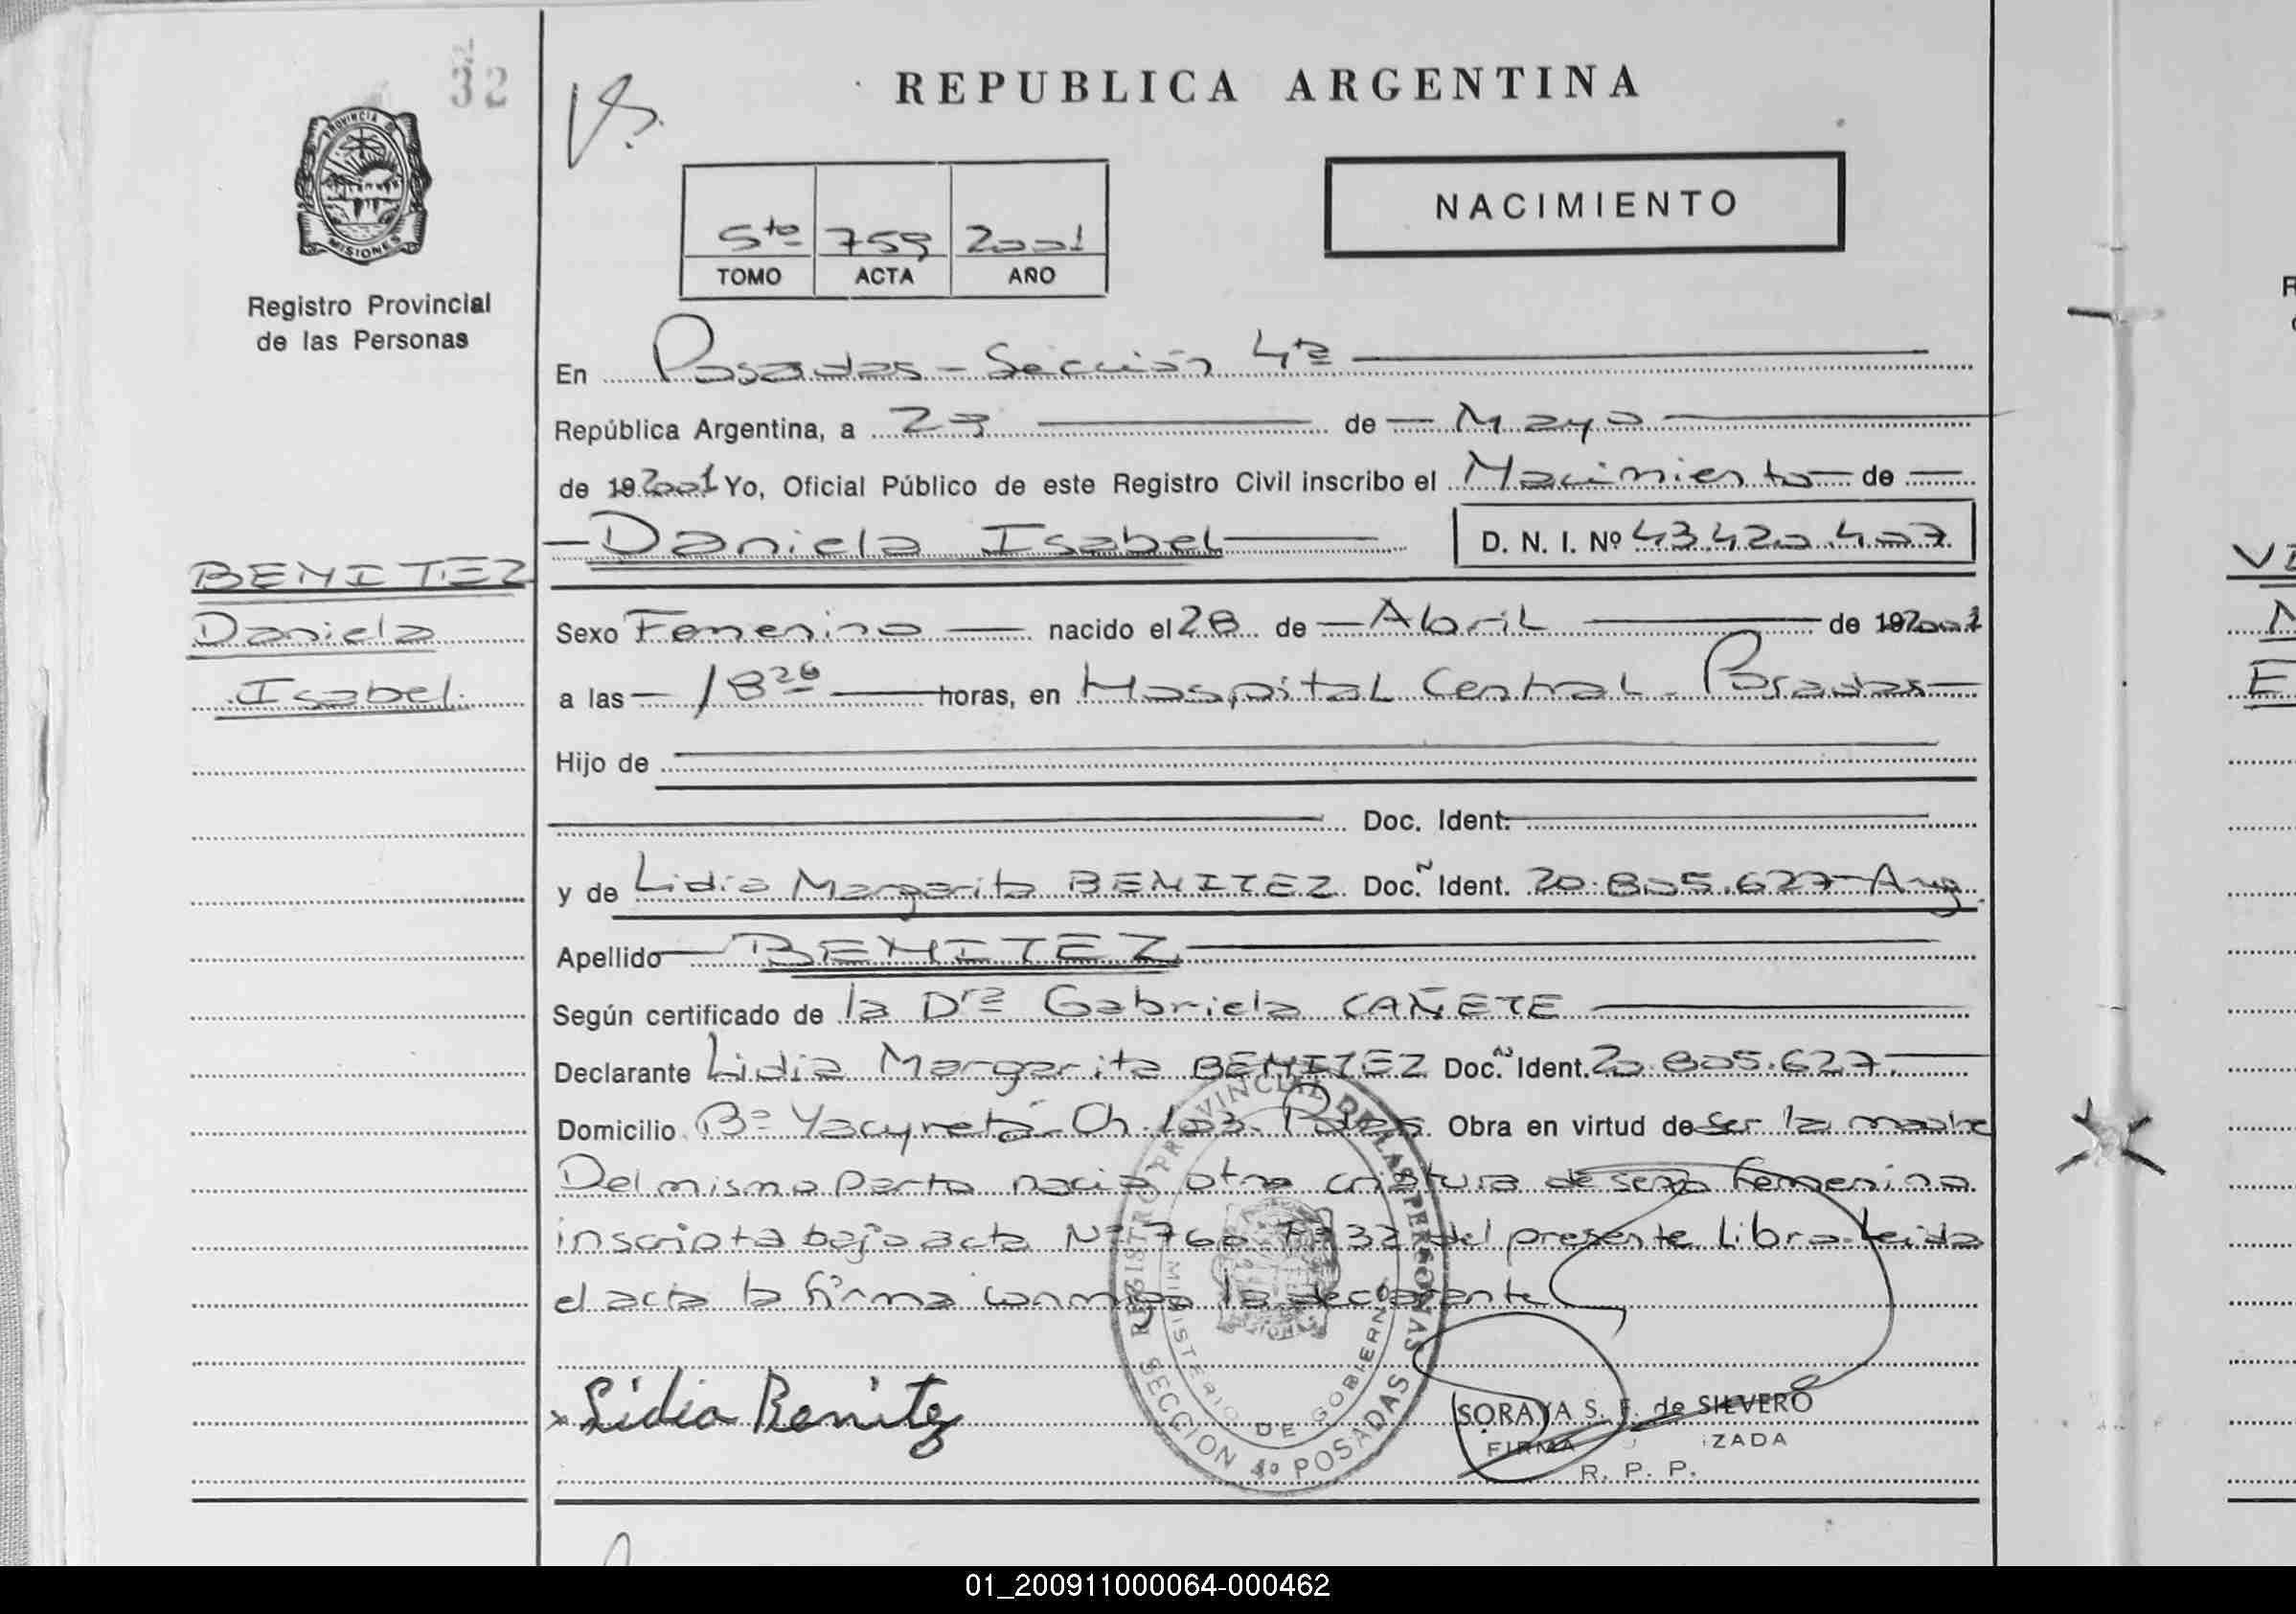 32
REPUBLICA ARGENTINA
PROVINCIA DE
MISIONES
Registro Provincial
de las Personas
5to 759 2001
TOMO ACTA AÑO
NACIMIENTO
En Posadas - Sección 4ta
República Argentina, a 23 de Mayo
de 192001 Yo, Oficial Público de este Registro Civil inscribo el Nacimiento de
Daniela Isabel D. N. I. Nº 43.420.407
BENITEZ
Daniela
Isabel.
Sexo Femenino nacido el 28 de Abril de 192001
a las 18 20 horas, en Hospital Central - Posadas
Hijo de
Doc. Ident.
y de Lidia Margarita BENITEZ Doc. Ident. 20.805.627 - Arg.
Apellido BENITEZ
Según certificado de la Dra Gabriela CAÑETE
Declarante Lidia Margarita BENITEZ Doc. Ident. 20.805.627.
Domicilio Bº Yacyretá - Ch. 103. Pdas. Obra en virtud de ser la madre
Del mismo parto nació otra criatura de sexo femenino
inscripta bajo acta Nº 760 Fº 32 del presente Libro. Leida
el acta la firma conmigo la declarante
REGISTRO PROVINCIAL DE LAS PERSONAS
MINISTERIO DE GOBIERNO
SECCION 4º POSADAS
x Lidia Benitez
SORAYA S. F. de SILVERO
FIRMA IZADA
R. P. P.
01_200911000064-000462